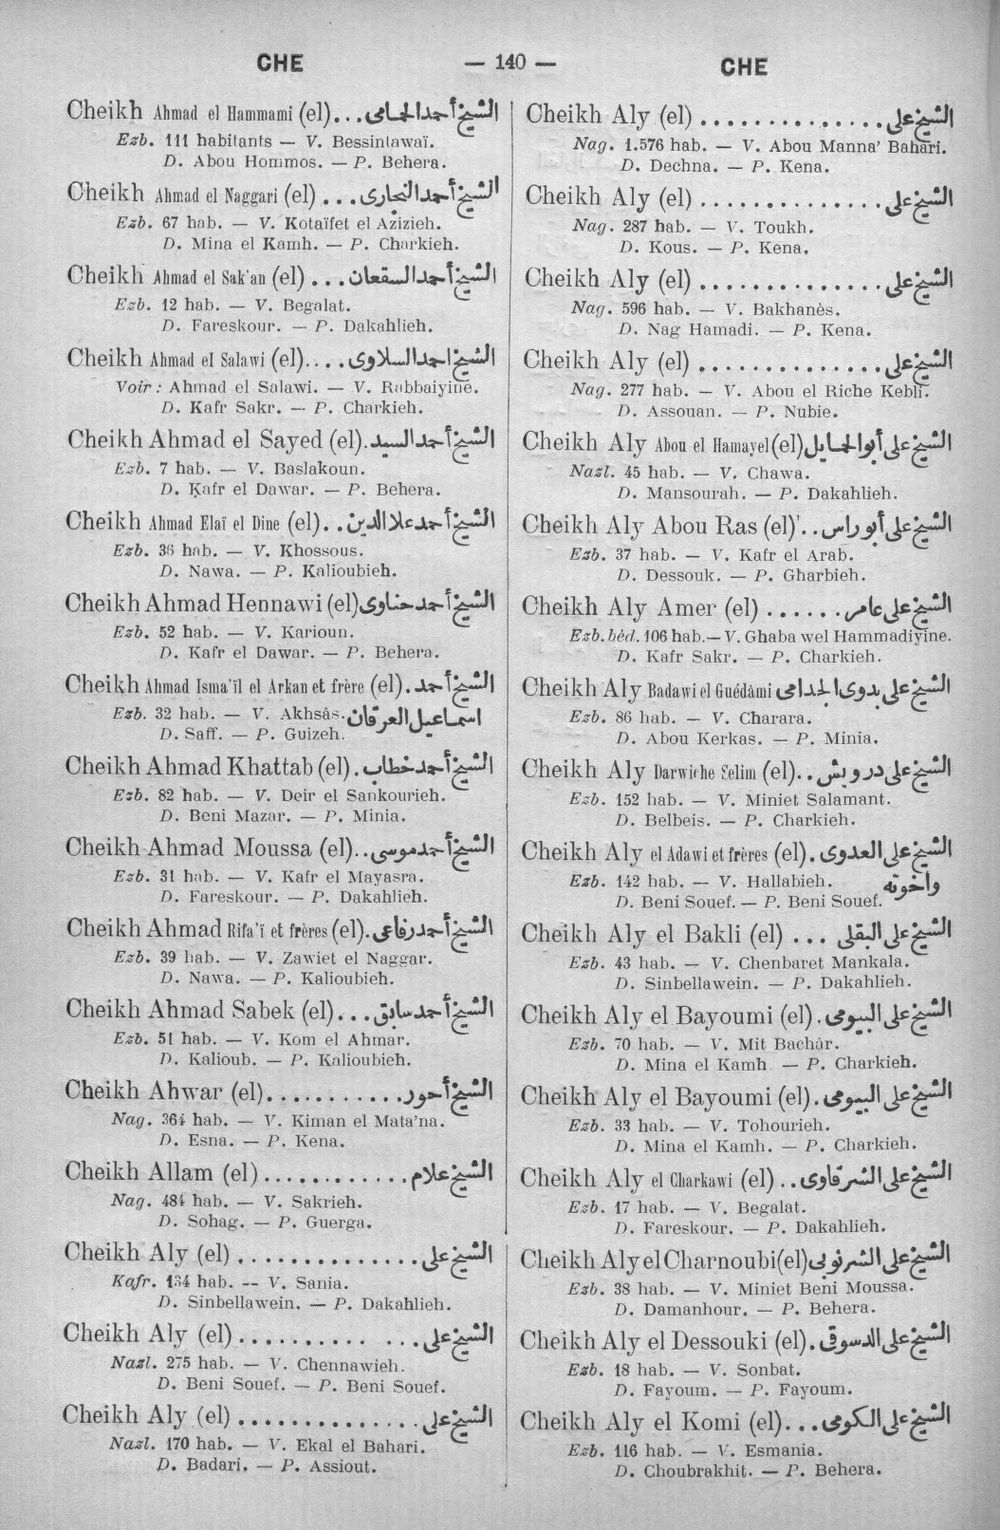 CHE
— 140 —
CHE
Cheikh Ahmad el Hammami (el)... الشيخ أحمد الحمامى
Ezb. 111 habitants — V. Bessintawaï.
D. Abou Hommos. — P. Behera.
Cheikh Ahmad el Naggari (el)... الشيخ أحمد النجارى
Ezb. 67 hab. — V. Kotaïfet el Azizieh.
D. Mina el Kamh. — P. Charkieh.
Cheikh Ahmad el Sak'an (el)... الشيخ أحمد السقعان
Ezb. 12 hab. — V. Begalat.
D. Fareskour. — P. Dakahlieh.
Cheikh Ahmad el Salawi (el).... الشيخ احمد السلاوى
Voir : Ahmad el Salawi. — V. Rabbaiyine.
D. Kafr Sakr. — P. Charkieh.
Cheikh Ahmad el Sayed (el). الشيخ أحمد السيد
Ezb. 7 hab. — V. Baslakoun.
D. Kafr el Dawar. — P. Behera.
Cheikh Ahmad Elaï el Dine (el).. الشيخ أحمد علا الدين
Ezb. 36 hab. — V. Khossous.
D. Nawa. — P. Kalioubieh.
Cheikh Ahmad Hennawi (el) الشيخ أحمد حناوى
Ezb. 52 hab. — V. Karioun.
D. Kafr el Dawar. — P. Behera.
Cheikh Ahmad Isma'ïl el Arkan et frère (el). الشيخ أحمد
Ezb. 32 hab. — V. Akhsâs. اسماعيل العرقان
D. Saff. — P. Guizeh.
Cheikh Ahmad Khattab (el). الشيخ أحمد خطاب
Ezb. 82 hab. — V. Deir el Sankourieh.
D. Beni Mazar. — P. Minia.
Cheikh Ahmad Moussa (el).. الشيخ أحمد موسى
Ezb. 31 hab. — V. Kafr el Mayasra.
D. Fareskour. — P. Dakahlieh.
Cheikh Ahmad Rifa'ï et frères (el). الشيخ أحمد رفاعى
Ezb. 39 hab. — V. Zawiet el Naggar.
D. Nawa. — P. Kalioubieh.
Cheikh Ahmad Sabek (el)... الشيخ أحمد سابق
Ezb. 51 hab. — V. Kom el Ahmar.
D. Kalioub. — P. Kalioubieh.
Cheikh Ahwar (el)........... الشيخ أحور
Nag. 364 hab. — V. Kiman el Mata'na.
D. Esna. — P. Kena.
Cheikh Allam (el)........... الشيخ علام
Nag. 484 hab. — V. Sakrieh.
D. Sohag. — P. Guerga.
Cheikh Aly (el).............. الشيخ على
Kafr. 134 hab. -- V. Sania.
D. Sinbellawein. — P. Dakahlieh.
Cheikh Aly (el).......... ... الشيخ على
Nazl. 275 hab. — V. Chennawieh.
D. Beni Souef. — P. Beni Souef.
Cheikh Aly (el).............. الشيخ على
Nazl. 170 hab. — V. Ekal el Bahari.
D. Badari. — P. Assiout.
Cheikh Aly (el).............. الشيخ على
Nag. 1.576 hab. — V. Abou Manna' Bahari.
D. Dechna. — P. Kena.
Cheikh Aly (el).............. الشيخ على
Nag. 287 hab. — V. Toukh.
D. Kous. — P. Kena.
Cheikh Aly (el).............. الشيخ على
Nag. 596 hab. — V. Bakhanès.
D. Nag Hamadi. — P. Kena.
Cheikh Aly (el).............. الشيخ على
Nag. 277 hab. — V. Abou el Riche Kebli.
D. Assouan. — P. Nubie.
Cheikh Aly Abou el Hamayel (el) الشيخ على أبو الحمايل
Nazl. 45 hab. — V. Chawa.
D. Mansourah. — P. Dakahlieh.
Cheikh Aly Abou Ras (el)'.. الشيخ على أبو راس
Ezb. 37 hab. — V. Kafr el Arab.
D. Dessouk. — P. Gharbieh.
Cheikh Aly Amer (el)...... الشيخ على عامر
Ezb. béd. 106 hab.— V. Ghaba wel Hammadiyine.
D. Kafr Sakr. — P. Charkieh.
Cheikh Aly Badawi el Guédâmi الشيخ على بدوى الجدامى
Ezb. 86 hab. — V. Charara.
D. Abou Kerkas. — P. Minia.
Cheikh Aly Darwiche Selim (el).. الشيخ على درويش
Ezb. 152 hab. — V. Miniet Salamant.
D. Belbeis. — P. Charkieh.
Cheikh Aly el Adawi et frères (el). الشيخ على العدوى
Ezb. 142 hab. — V. Hallabieh. واخوته
D. Beni Souef. — P. Beni Souef.
Cheikh Aly el Bakli (el) ... الشيخ على البقلى
Ezb. 43 hab. — V. Chenbaret Mankala.
D. Sinbellawein. — P. Dakahlieh.
Cheikh Aly el Bayoumi (el). الشيخ على البيومى
Ezb. 70 hab. — V. Mit Bachâr.
D. Mina el Kamh — P. Charkieh.
Cheikh Aly el Bayoumi (el). الشيخ على البيومى
Ezb. 33 hab. — V. Tohourieh.
D. Mina el Kamh. — P. Charkieh.
Cheikh Aly el Charkawi (el).. الشيخ على الشرقاوى
Ezb. 17 hab. — V. Begalat.
D. Fareskour. — P. Dakahlieh.
Cheikh Aly el Charnoubi (el) الشيخ على الشرنوبى
Ezb. 38 hab. — V. Miniet Beni Moussa.
D. Damanhour. — P. Behera.
Cheikh Aly el Dessouki (el). الشيخ على الدسوقى
Ezb. 18 hab. — V. Sonbat.
D. Fayoum. — P. Fayoum.
Cheikh Aly el Komi (el)... الشيخ على الكومى
Ezb. 116 hab. — V. Esmania.
D. Choubrakhit. — P. Behera.